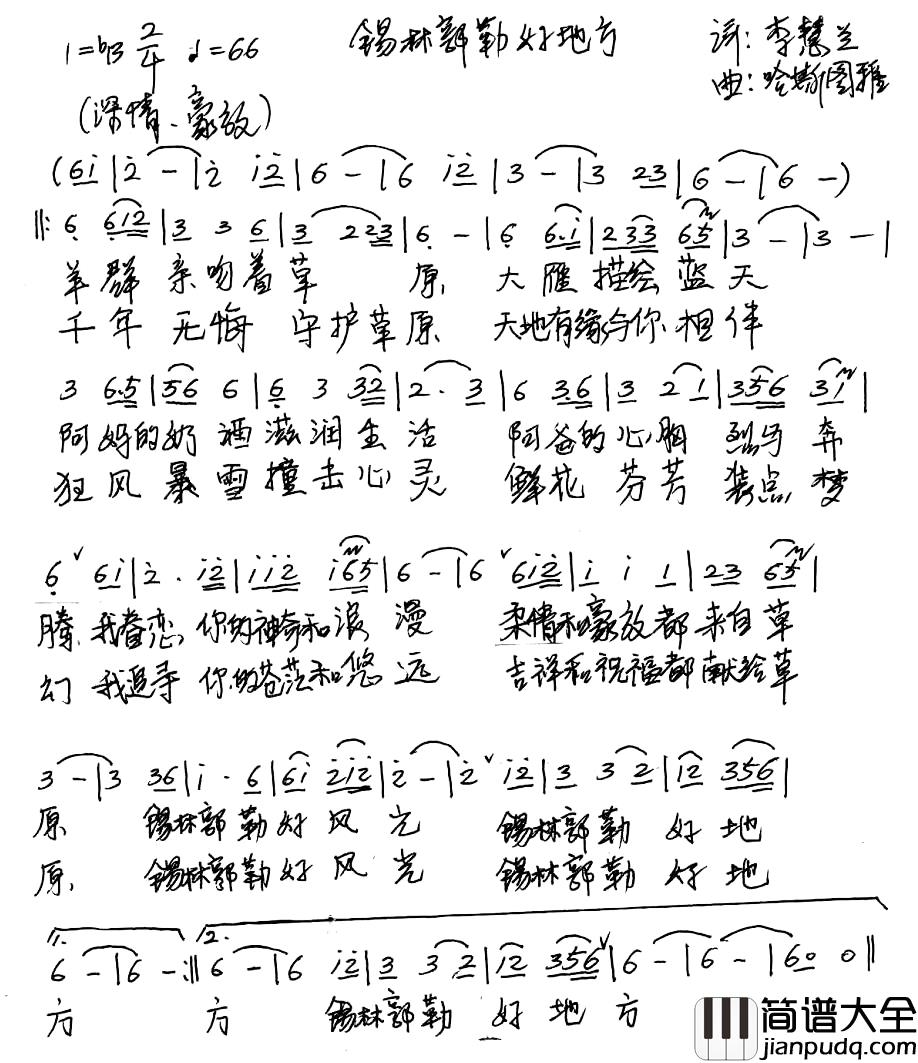 1=bB 2/4 ♩=66 锡林郭勒好地方 词:李慧兰
(深情、豪放) 曲:哈斯图雅
(6i|2 - |2 i2|6 - |6 i2|3 - |3 23|6 - |6 -)
‖:6 612|3 3 6|3 223|6 - |6 6.i|233 65|3 - |3 - |
羊群 亲吻着草 原 大雁描绘蓝天
千年 无悔 守护草原 天地有缘与你相伴
3 6.5|56 6|6 3 32|2. 3|6 36|3 21|356 31|
阿妈的奶酒滋润生活 阿爸的心胸 烈马奔
狂风暴雪撞击心灵 鲜花芬芳装点梦
6 ∨ 6i|2. i2|ii2 i65|6 - |6 ∨ 6i2|i i 1|23 65|
腾 我眷恋 你的神奇和浪漫 柔情和豪放都来自草
幻 我追寻 你的苍茫和悠远 吉祥和祝福都献给草
3 - |3 36|i. 6|6i 2i2|2 - |2 ∨ i2|3 3 2|i2 356|
原 锡林郭勒好风光 锡林郭勒 好地
原 锡林郭勒好风光 锡林郭勒 好地
1. 2.
6 - |6 - :‖6 - |6 i2|3 3 2|i2 356 ∨|6 - |6 - |60 0‖
方 方 锡林郭勒 好地方
简谱大全
jianpudq.com